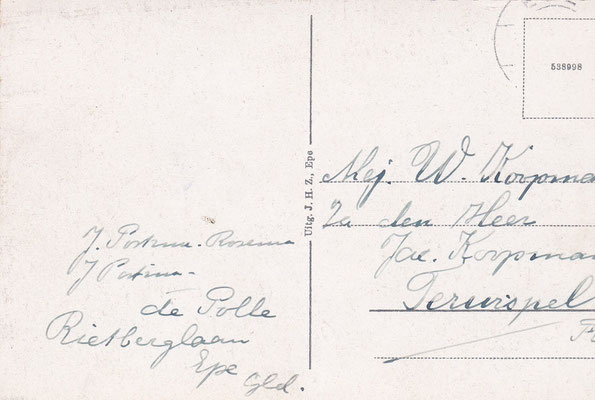 J. Postma-Rozema
J Postma-
de Polle
Rietberglaan
Epe
Gld.
Uitg. J. H. Z., Epe
538998
Mej. W. Koopma
den Heer
Jac. Koopman
Terwispel